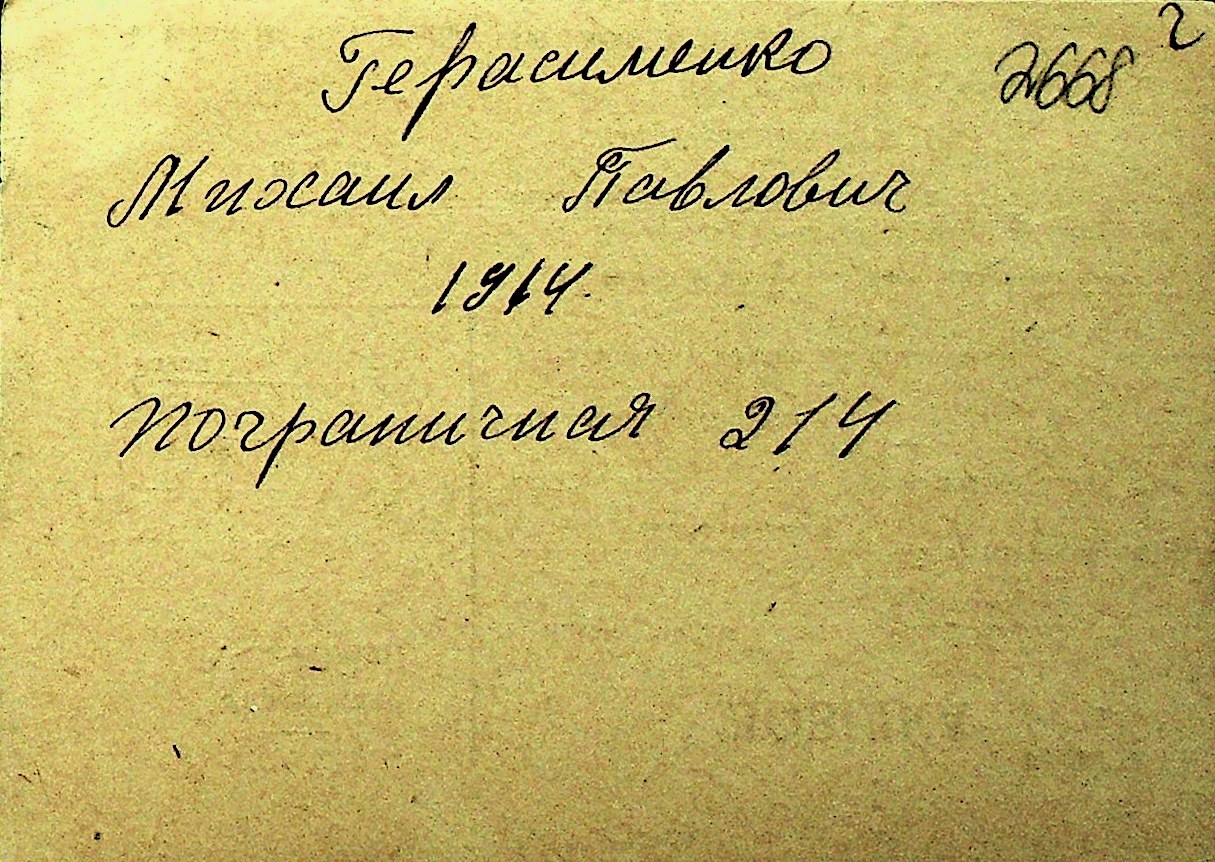 Герасименко 2668 г
Михаил Павлович
1914.
пограничная 214